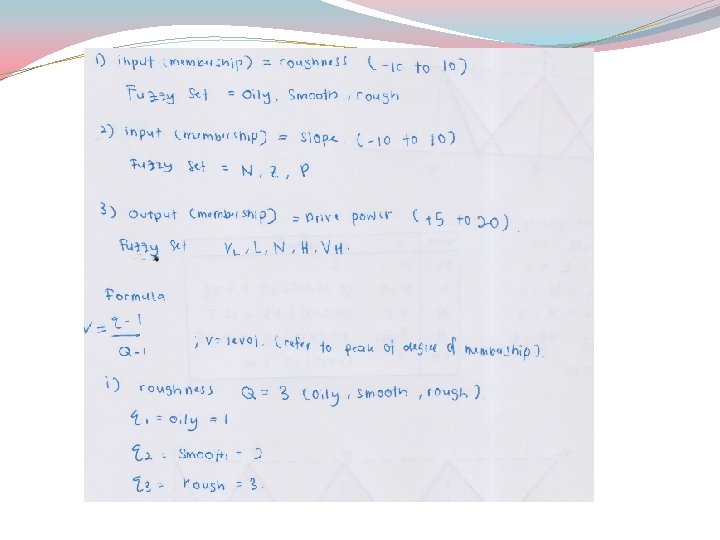 1) input (membership) = roughness (-10 to 10)
Fuzzy Set = Oily, Smooth, rough
2) input (membership) = Slope. (-10 to 10)
Fuzzy Set = N, Z, P
3) output (membership) = Drive power (+5 to 20).
Fuzzy Set VL, L, N, H, VH.
Formula
v = q-1
Q-1
; v = level. (refer to peak of degree of membership).
i) roughness Q = 3 (oily, smooth, rough)
q1 = oily = 1
q2 = smooth = 2
q3 = rough = 3.